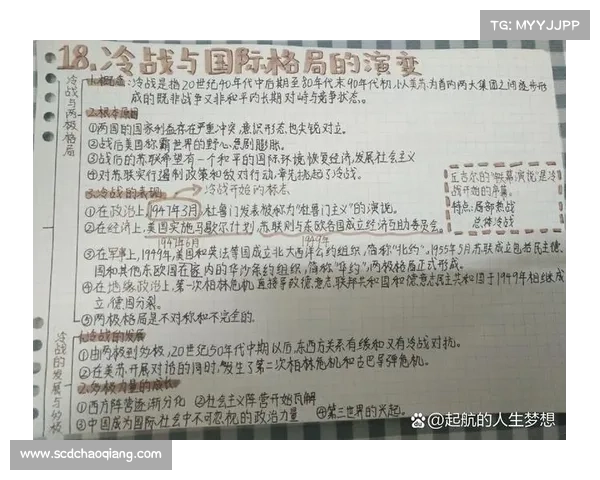 TG: MYYJJPP
18.冷战与国际格局的演变
冷战与两极格局
1.概念:冷战是指20世纪40年代中后期至80年代末90年代初,以美苏为首的两大集团之间逐步形
成的既非战争又非和平的长期对峙与竞争状态。
2.根本原因
①两国的国家利益存在严重冲突,意识形态也尖锐对立。
②战后美国称霸世界的野心急剧膨胀。
③战后的苏联希望有一个和平的国际环境,恢复经济,发展社会主义
④对苏联实行遏制政策和敌对行动,率先挑起了冷战。
3.冷战的表现:
冷战开始的标志
①在政治上,1947年3月,杜鲁门发表被称为"杜鲁门主义"的演说。
②在经济上,美国实施马歇尔计划,苏联则与东欧各国成立经济互助委员会。
1947年6月
1949年
丘吉尔的"铁幕演说"是冷
战开始的序幕。
特点:局部热战
总体冷战
③在军事上,1949年,美国和英法等国成立北大西洋公约组织,简称"北约"。1955年5月,苏联成立包括民主德
国和其他东欧国在内的华沙条约组织,简称"华约",两极格局正式形成。
④在地缘政治上,第一次柏林危机直接导致德意志联邦共和国和德意志民主共和国于1949年相继成
立,德国分裂。
⑤两极格局是不对称和不完全的。
冷战的发展与多极
1.冷战的发展
①由两极到多极,20世纪50年代中期以后,东西方关系有缓和又有冷战对抗。
②在美苏开展对话的同时,发生了第二次柏林危机和古巴导弹危机。
2.多极力量的成长
①西方阵营逐渐分化 ②社会主义阵营开始瓦解
③中国成为国际社会中不可忽视的政治力量 ④第三世界的兴起。
@起航的人生梦想
www.scdchaoqiang.com